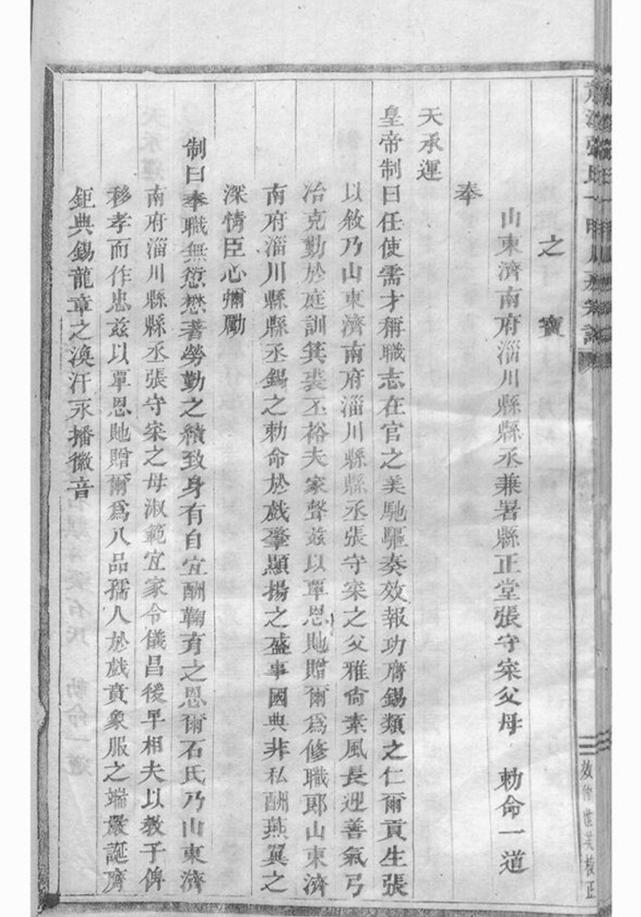 之寶
山東濟南府淄川縣縣丞兼署縣正堂張守宷父母 勅命一道
奉
天承運
皇帝制曰任使需才稱職志在官之美馳驅奏效報功膺錫類之仁爾貢生張
以敘乃山東濟南府淄川縣縣丞張守宷之父雅尙素風長迎善氣弓
冶克勤於庭訓箕裘丕裕夫家聲兹以覃恩貤贈爾爲修職郎山東濟
南府淄川縣縣丞錫之勅命於戲肇顯揚之盛事國典非私酬燕翼之
深情臣心彌勵
制曰奉職無愆懋著勞勤之績致身有自宜酬鞠育之恩爾石氏乃山東濟
南府淄川縣縣丞張守宷之母淑範宜家令儀昌後早相夫以敎子俾
移孝而作忠兹以覃恩貤贈爾爲八品孺人於戲賁象服之端嚴誕膺
鉅典錫龍章之渙汗永播徽音